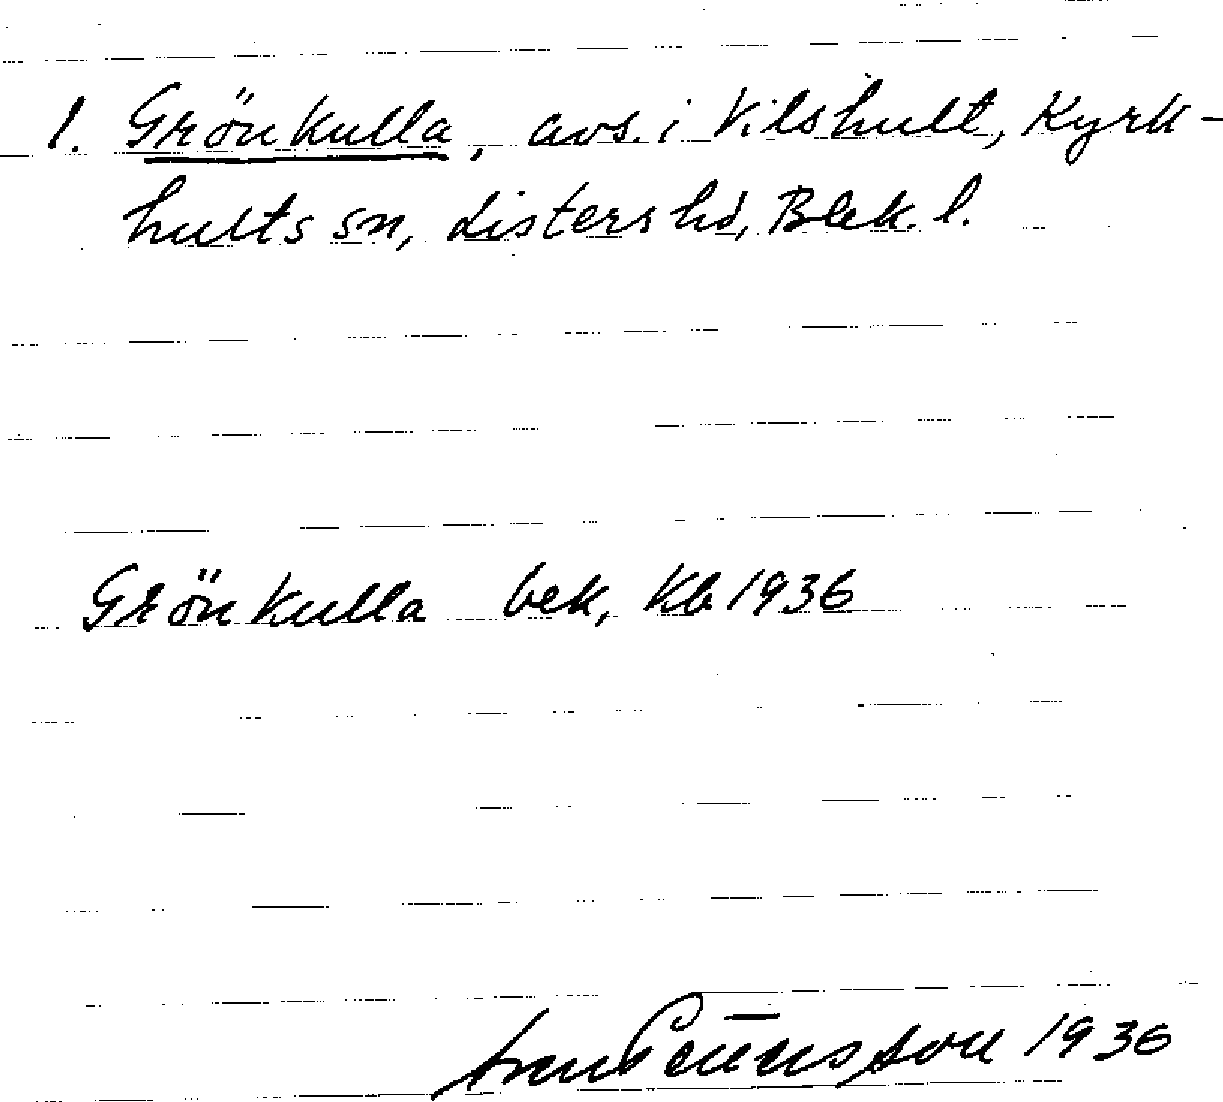 1. Grönkulla, avs. i Vilshult, Kyrk-
hults sn, Listers hd, Blek. l.
Grönkulla bek, Kb 1936
1936